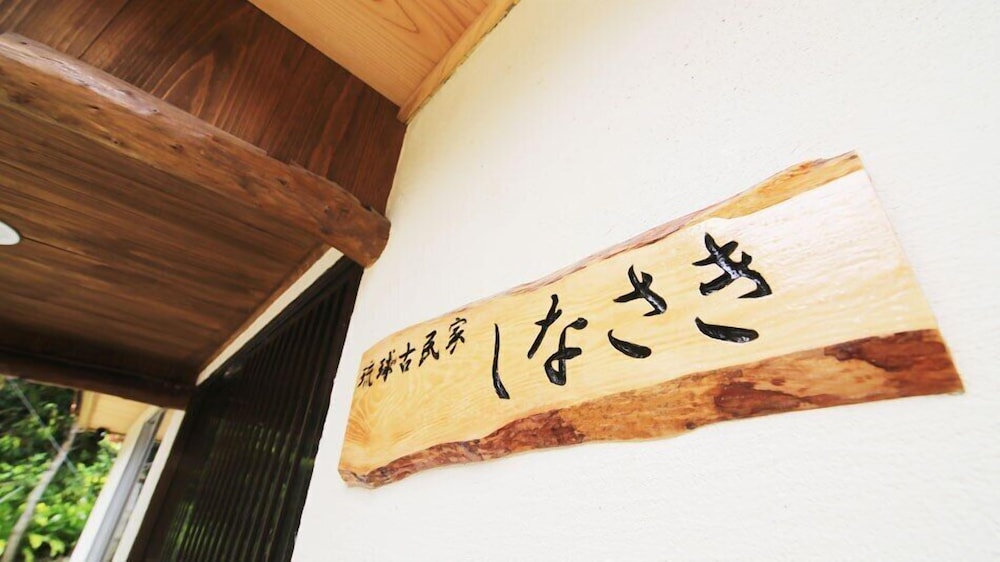 琉球古民家 しなさき